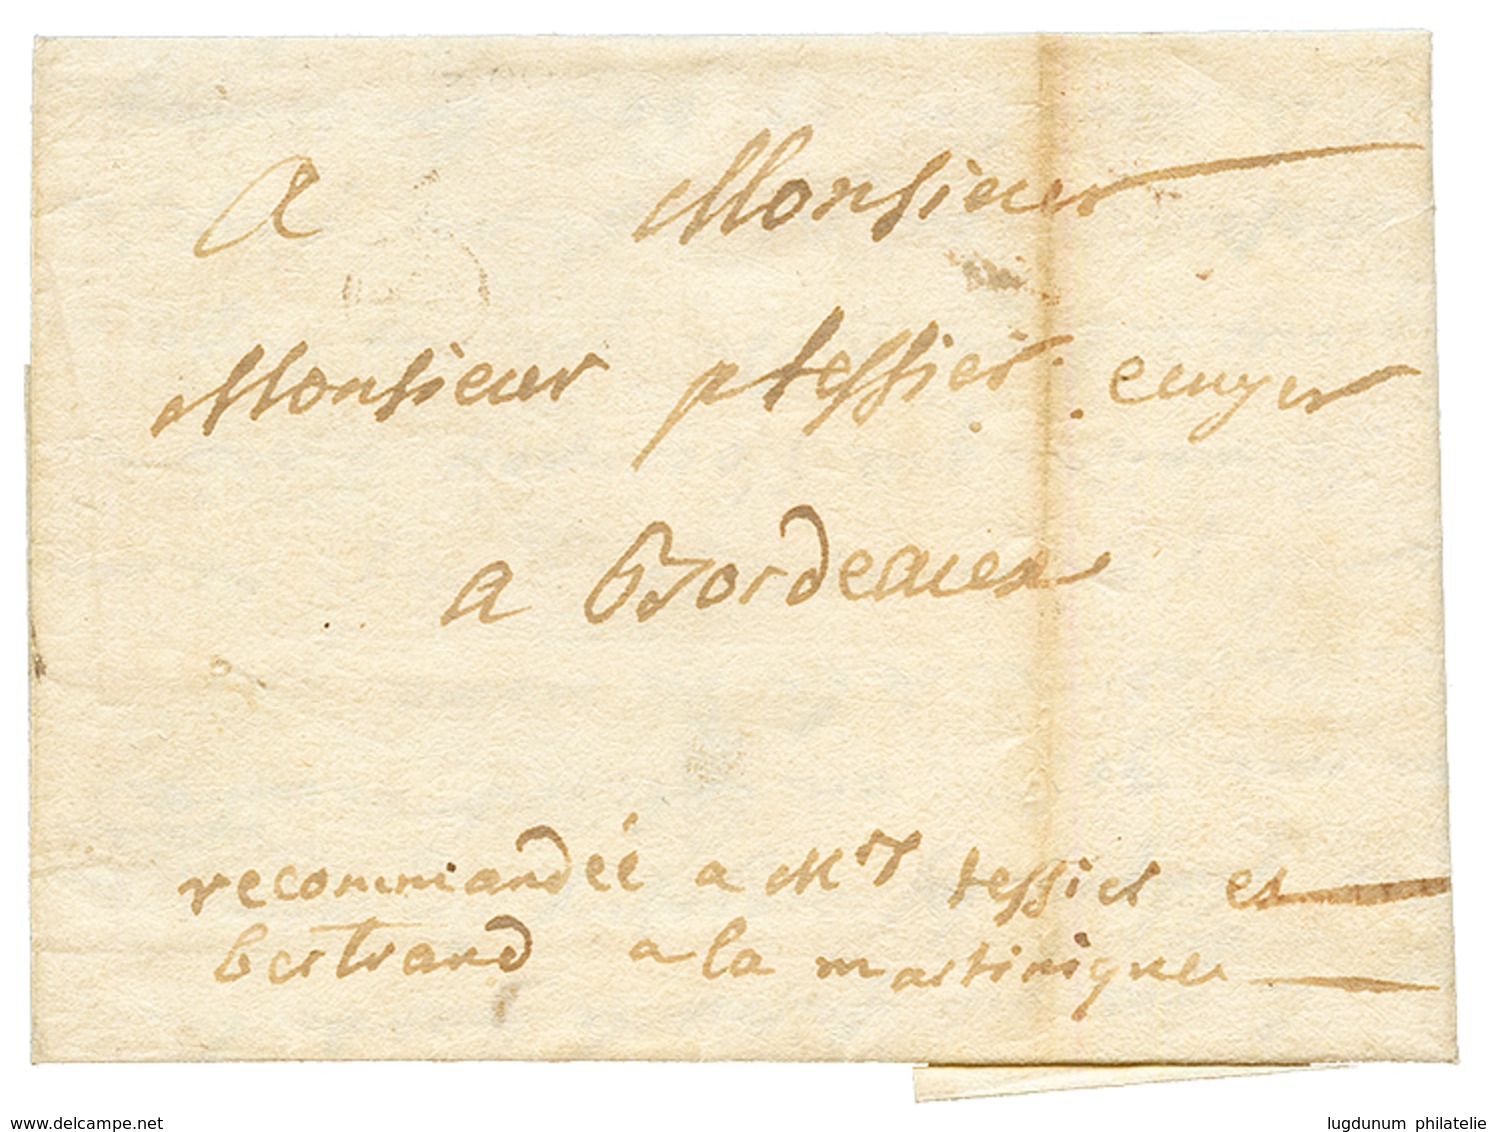 a Monsieur
Monsieur p tessier ecuyer
a Bordeaux
recommandéé a Mrs tessier et
bertrand a la martinique
www.delcampe.net
lugdunum philatelie